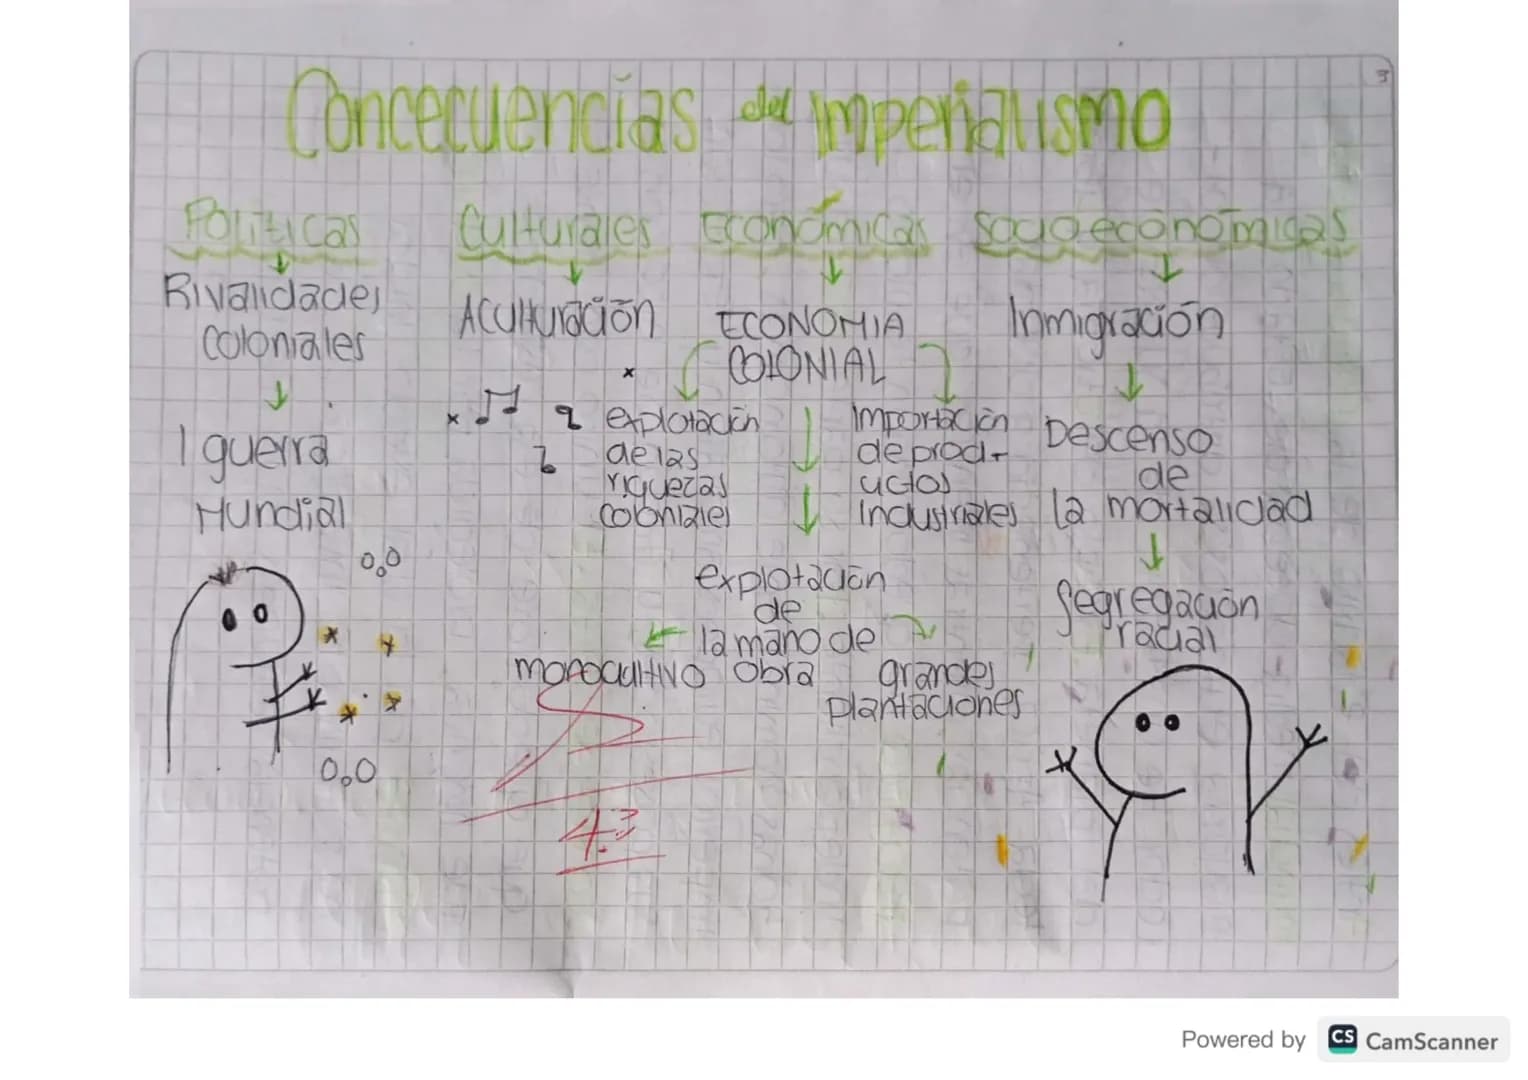 Concecuencias del imperialismo
Políticas
Rivalidades
Coloniales
I guerra
Mundial
Culturales
Aculturación
Económicas
ECONOMIA
COLONIAL
explotación
de las
riquezas
coloniales
importación
de prod-
uctos
industriales
explotación
de
la mano de
obra
monocultivo
grandes
plantaciones
Socioeconómicas
Inmigración
Descenso
de
la mortalidad
Segregación
racial
Powered by CS CamScanner